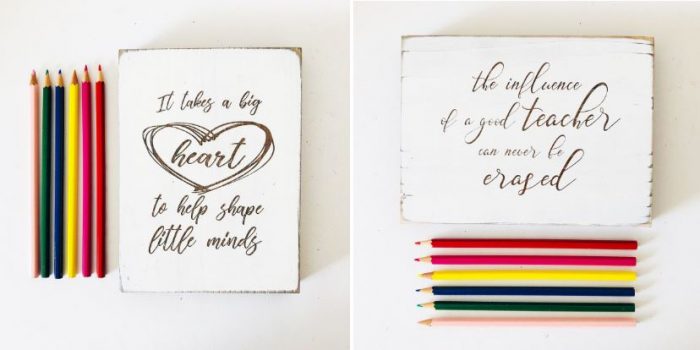 It takes a big
heart
to help shape
little minds
the influence
of a good teacher
can never be
erased